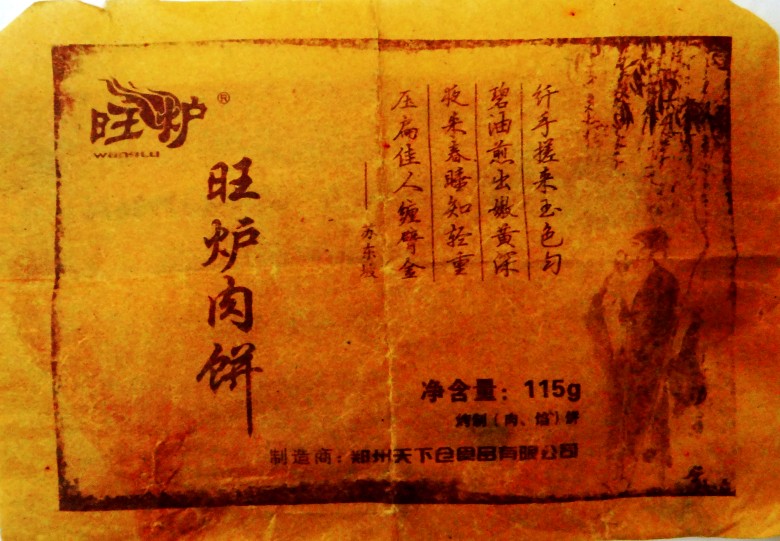 旺炉®
WANGLU
旺炉肉饼
纤手搓来玉色匀
碧油煎出嫩黄深
夜来春睡知轻重
压扁佳人缠臂金
——苏东坡
净含量：115g
烤制（肉、馅）饼
制造商：郑州天下仓食品有限公司